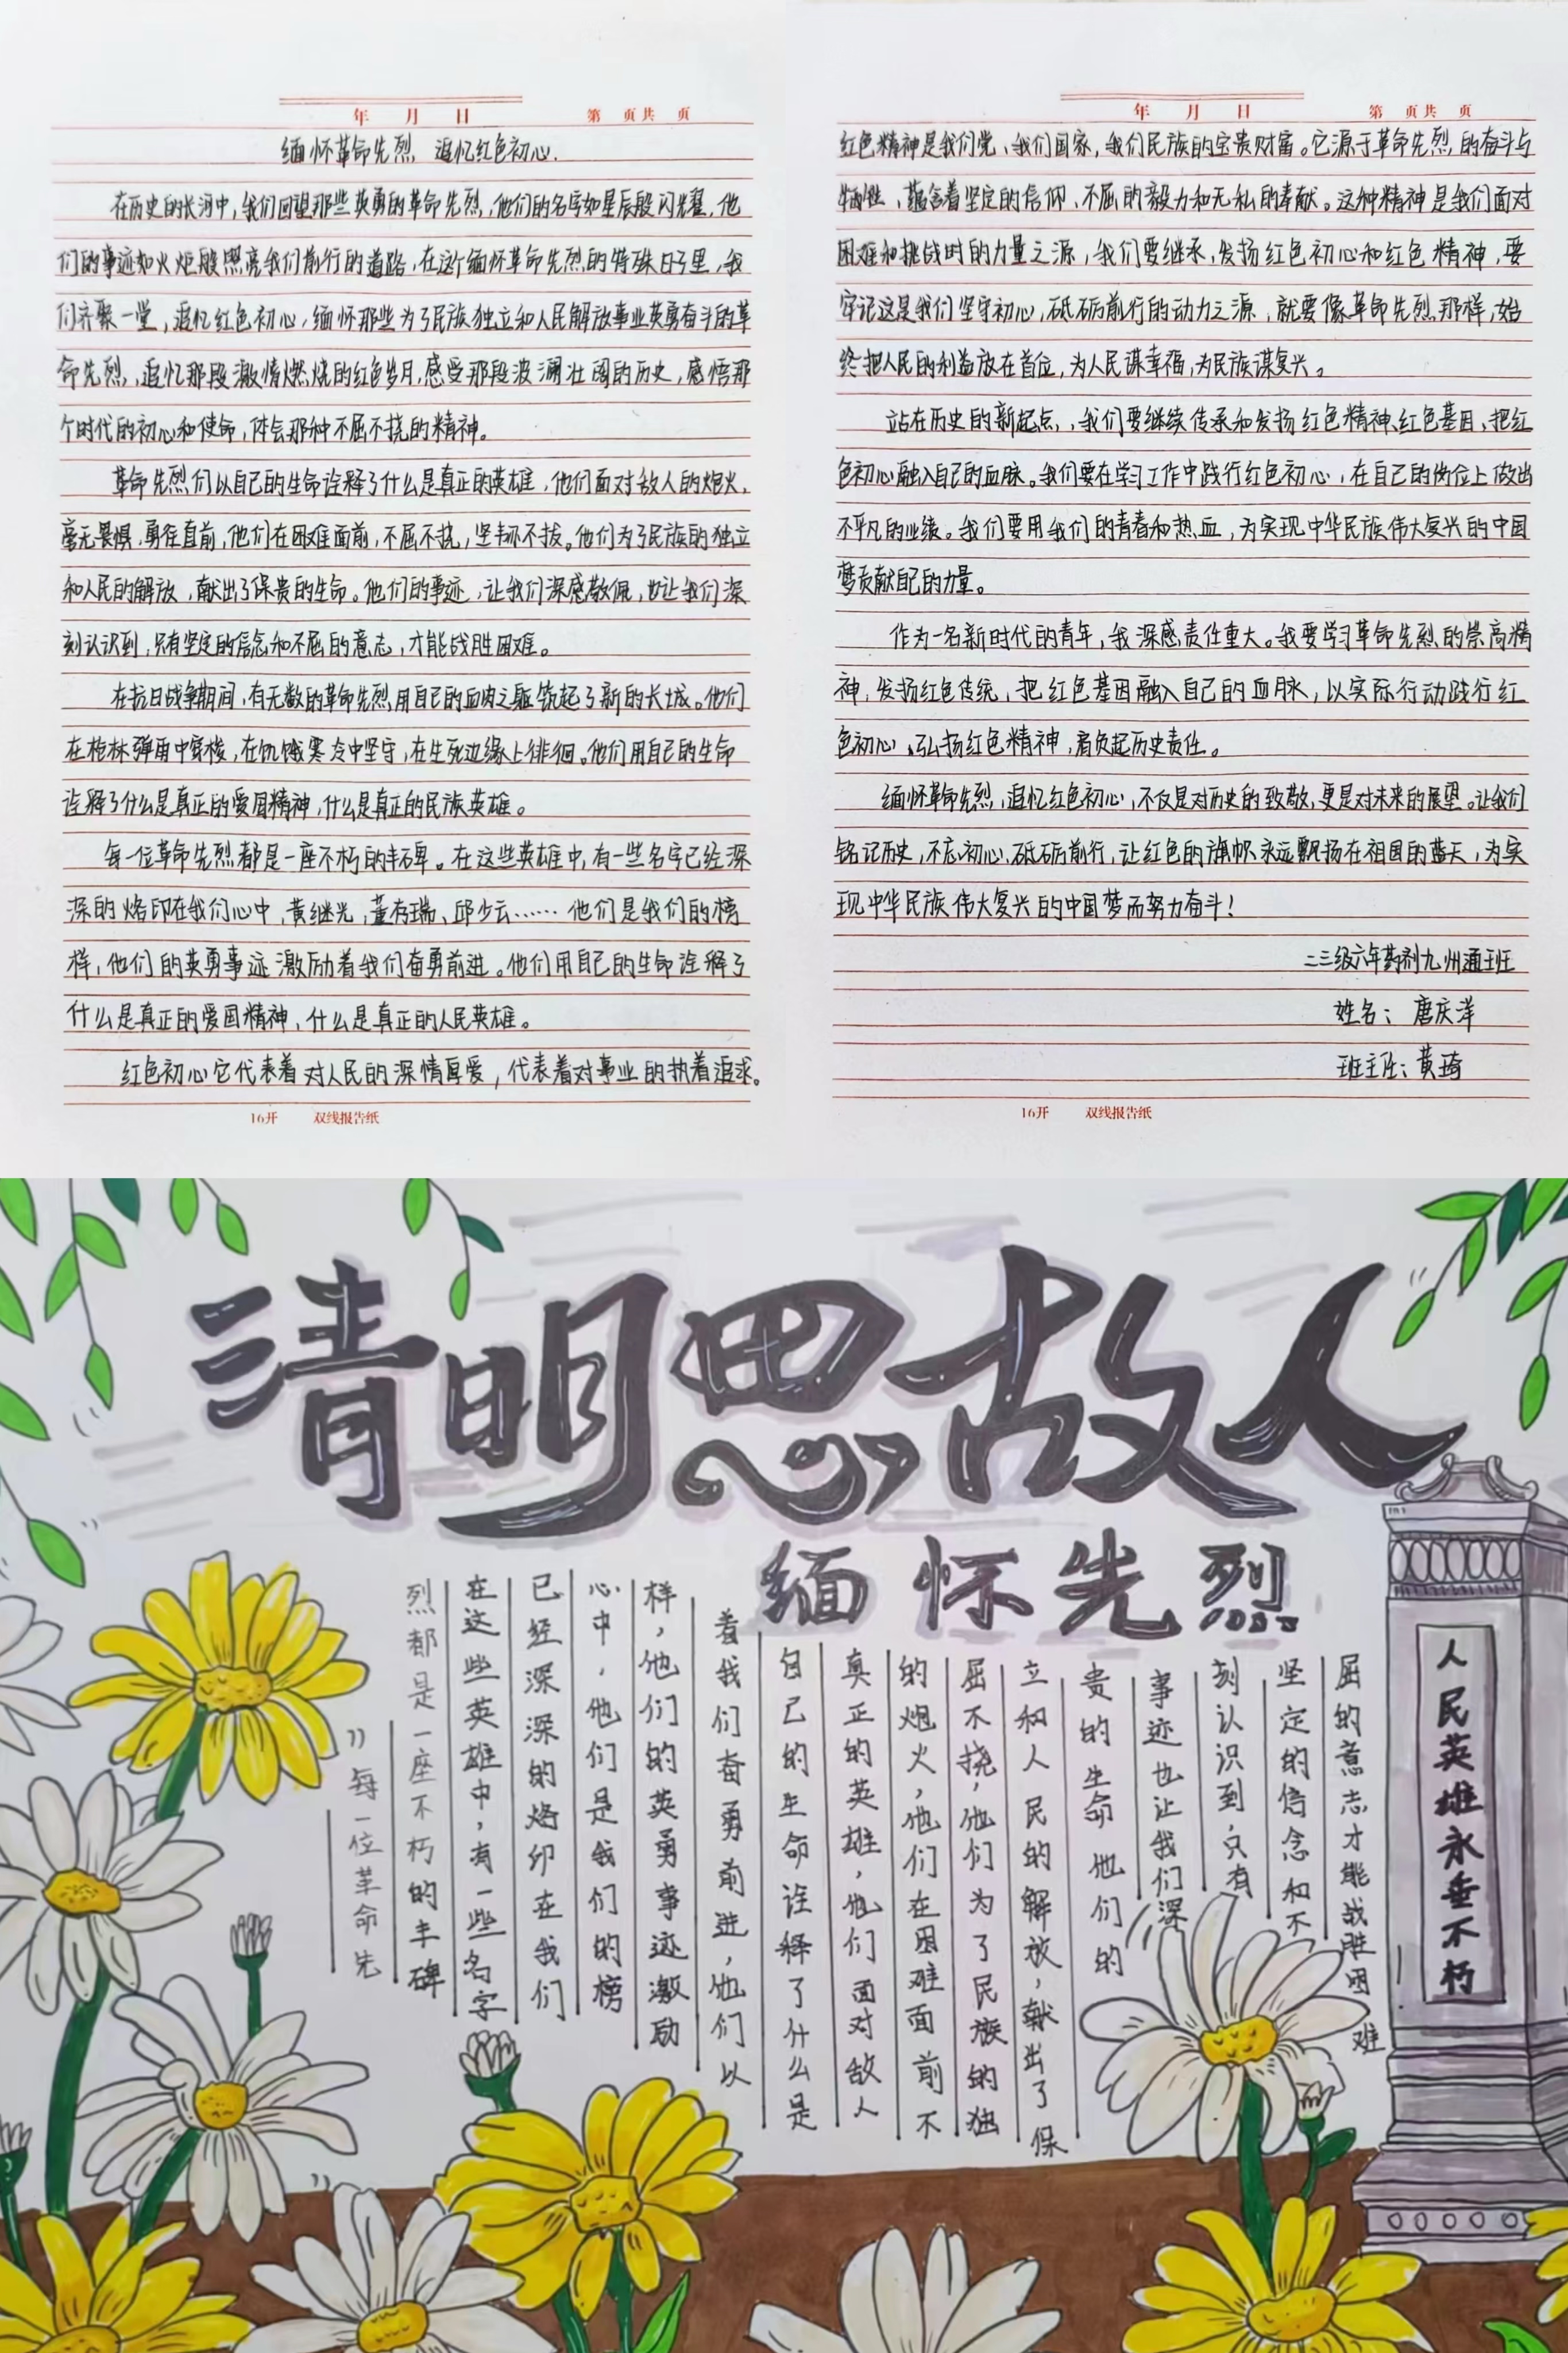 年 月 日
第 页共 页
缅怀革命先烈 追忆红色初心.
在历史的长河中,我们回望那些英勇的革命先烈,他们的名字如星辰般闪耀,他
们的事迹如火炬般照亮我们前行的道路,在这个缅怀革命先烈的特殊日子里,我
们齐聚一堂,追忆红色初心,缅怀那些为了民族独立和人民解放事业英勇奋斗的革
命先烈,追忆那段激情燃烧的红色岁月,感受那段波澜壮阔的历史,感悟那
个时代的初心和使命,体会那种不屈不挠的精神。
革命先烈们以自己的生命诠释了什么是真正的英雄,他们面对敌人的炮火,
毫无畏惧,勇往直前,他们在困难面前,不屈不挠,坚韧不拔。他们为了民族的独立
和人民的解放,献出了保贵的生命。他们的事迹,让我们深感敬佩,也让我们深
刻认识到,只有坚定的信念和不屈的意志,才能战胜困难。
在抗日战争期间,有无数的革命先烈用自己的血肉之躯筑起了新的长城。他们
在枪林弹雨中穿梭,在饥饿寒冷中坚守,在生死边缘上徘徊。他们用自己的生命
诠释了什么是真正的爱国精神,什么是真正的民族英雄。
每一位革命先烈都是一座不朽的丰碑。在这些英雄中,有一些名字已经深
深的烙印在我们心中,黄继光,董存瑞、邱少云……他们是我们的榜
样,他们的英勇事迹激励着我们奋勇前进。他们用自己的生命诠释了
什么是真正的爱国精神,什么是真正的人民英雄。
红色初心它代表着对人民的深情厚爱,代表着对事业的执着追求。
16开 双线报告纸
年 月 日
第 页共 页
红色精神是我们党、我们国家,我们民族的宝贵财富。它源于革命先烈的奋斗与
牺牲,蕴含着坚定的信仰、不屈的毅力和无私的奉献。这种精神是我们面对
困难和挑战时的力量之源,我们要继承,发扬红色初心和红色精神,要
牢记这是我们坚守初心,砥砺前行的动力之源,就要像革命先烈那样,始
终把人民的利益放在首位,为人民谋幸福,为民族谋复兴。
站在历史的新起点,,我们要继续传承和发扬红色精神、红色基因,把红
色初心融入自己的血脉。我们要在学习工作中践行红色初心,在自己的岗位上做出
不平凡的业绩。我们要用我们的青春和热血,为实现中华民族伟大复兴的中国
梦贡献自己的力量。
作为一名新时代的青年,我深感责任重大。我要学习革命先烈的崇高精
神,发扬红色传统,把红色基因融入自己的血脉,以实际行动践行红
色初心,弘扬红色精神,肩负起历史责任。
缅怀革命先烈,追忆红色初心,不仅是对历史的致敬,更是对未来的展望。让我们
铭记历史,不忘初心,砥砺前行,让红色的旗帜永远飘扬在祖国的蓝天,为实
现中华民族伟大复兴的中国梦而努力奋斗!
二三级六年药剂九州通班
姓名:唐庆洋
班主任:黄琦
16开 双线报告纸
清明思故人
缅怀先烈
每一位革命先
烈都是一座不朽的丰碑
在这些英雄中,有一些名字
已经深深的烙印在我们
心中,他们是我们的榜
样,他们的英勇事迹激励
着我们奋勇前进,他们以
自己的生命诠释了什么是
真正的英雄,他们面对敌人
的炮火,他们在困难面前不
屈不挠,他们为了民族的独
立和人民的解放,献出了保
贵的生命他们的
事迹也让我们深
刻认识到,只有
坚定的信念和不
屈的意志才能战胜困难
人民英雄永垂不朽